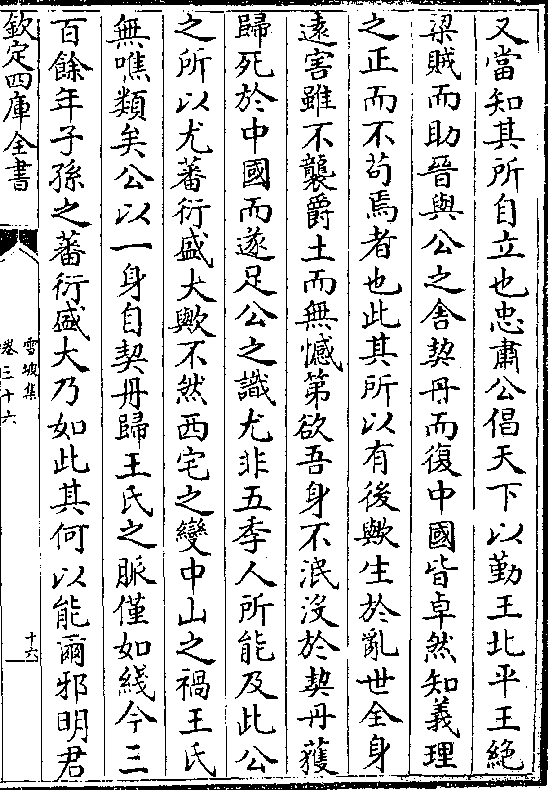 又當知其所自立也忠肅公倡天下以勤王北平王絶
梁賊而助晉與公之舎契丹而復中國皆卓然知義理
之正而不茍焉者也此其所以有後歟生於亂世全身
逺害雖不襲爵土而無憾第欲吾身不泯沒於契丹獲
歸死於中國而遂足公之識尤非五季人所能及此公
之所以尤蕃衍盛大歟不然西宅之變中山之禍王氏
無噍類矣公以一身自契丹歸王氏之脈僅如綫今三
百餘年子孫之蕃衍盛大乃如此其何以能爾邪明君
欽定四庫全書
雪坡集
卷三十六
十六